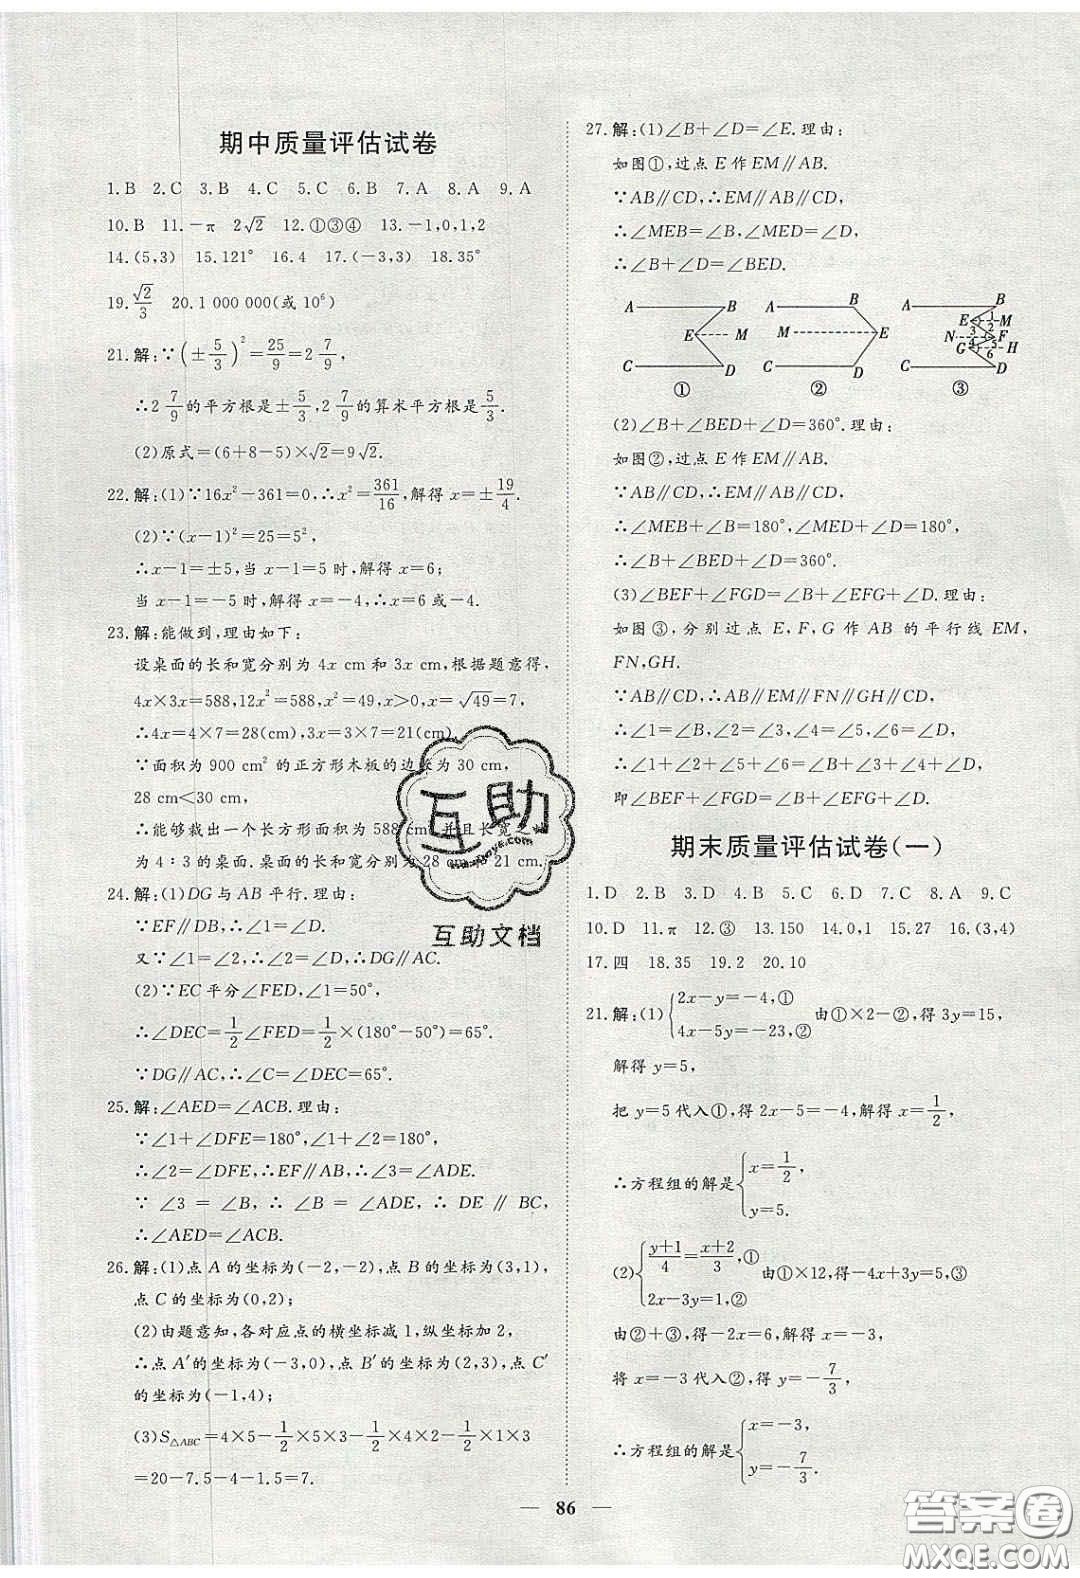 期中质量评估试卷
1.B 2.C 3.B 4.C 5.C 6.B 7.A 8.A 9.A
10.B 11.-π 2√2 12.①③④ 13.-1,0,1,2
14.(5,3) 15.121° 16.4 17.(-3,3) 18.35°
19.√2/3 20.1 000 000(或 10⁶)
21.解:∵(±5/3)²=25/9=2 7/9,
∴2 7/9的平方根是±5/3,2 7/9的算术平方根是5/3.
(2)原式=(6+8-5)×√2=9√2.
22.解:(1)∵16x²-361=0,∴x²=361/16,解得 x=±19/4.
(2)∵(x-1)²=25=5²,
∴x-1=±5,当 x-1=5 时,解得 x=6;
当 x-1=-5 时,解得 x=-4,∴x=6 或-4.
23.解:能做到,理由如下:
设桌面的长和宽分别为 4x cm 和 3x cm,根据题意得,
4x×3x=588,12x²=588,x²=49,x>0,x=√49=7,
∴4x=4×7=28(cm),3x=3×7=21(cm).
∵面积为 900 cm² 的正方形木板的边长为 30 cm,
28 cm<30 cm,
∴能够裁出一个长方形面积为 588 cm² 并且长宽之
为 4∶3 的桌面.桌面的长和宽分别为 28 cm 21 cm.
24.解:(1)DG 与 AB 平行.理由:
∵EF∥DB,∴∠1=∠D.
又∵∠1=∠2,∴∠2=∠D,∴DG∥AC.
(2)∵EC 平分∠FED,∠1=50°,
∴∠DEC=1/2∠FED=1/2×(180°-50°)=65°.
∵DG∥AC,∴∠C=∠DEC=65°.
25.解:∠AED=∠ACB.理由:
∵∠1+∠DFE=180°,∠1+∠2=180°,
∴∠2=∠DFE,∴EF∥AB,∴∠3=∠ADE.
∵ ∠3 = ∠B, ∴ ∠B = ∠ADE, ∴ DE ∥ BC,
∴∠AED=∠ACB.
26.解:(1)点 A 的坐标为(-2,-2),点 B 的坐标为(3,1),
点 C 的坐标为(0,2);
(2)由题意知,各对应点的横坐标减 1,纵坐标加 2,
∴点 A′的坐标为(-3,0),点 B′的坐标为(2,3),点 C′
的坐标为(-1,4);
(3)S△ABC=4×5-1/2×5×3-1/2×4×2-1/2×1×3
=20-7.5-4-1.5=7.
27.解:(1)∠B+∠D=∠E.理由:
如图①,过点 E 作 EM∥AB.
∵AB∥CD,∴EM∥AB∥CD,
∴∠MEB=∠B,∠MED=∠D,
∴∠B+∠D=∠BED.
A B E M C D ①
A B M E C D ②
A B E 1 M 2 N 3 F 4 5 G 6 H C D ③
(2)∠B+∠BED+∠D=360°.理由:
如图②,过点 E 作 EM∥AB.
∵AB∥CD,∴EM∥AB∥CD,
∴∠MEB+∠B=180°,∠MED+∠D=180°,
∴∠B+∠BED+∠D=360°.
(3)∠BEF+∠FGD=∠B+∠EFG+∠D.理由:
如图③,分别过点 E,F,G 作 AB 的平行线 EM,
FN,GH.
∵AB∥CD,∴AB∥EM∥FN∥GH∥CD,
∴∠1=∠B,∠2=∠3,∠4=∠5,∠6=∠D,
∴∠1+∠2+∠5+∠6=∠B+∠3+∠4+∠D,
即∠BEF+∠FGD=∠B+∠EFG+∠D.
期末质量评估试卷(一)
1.D 2.B 3.D 4.B 5.C 6.D 7.C 8.A 9.C
10.D 11.π 12.③ 13.150 14.0,1 15.27 16.(3,4)
17.四 18.35 19.2 20.10
21.解:(1){2x-y=-4,① 4x-5y=-23,② 由①×2-②,得 3y=15,
解得 y=5,
把 y=5 代入①,得 2x-5=-4,解得 x=1/2,
∴方程组的解是{x=1/2, y=5.
(2){(y+1)/4=(x+2)/3,① 2x-3y=1,② 由①×12,得-4x+3y=5,③
由②+③,得-2x=6,解得 x=-3,
将 x=-3 代入②,得 y=-7/3,
∴方程组的解是{x=-3, y=-7/3.
86
互助
互助文档
答案卷
MXQE.COM